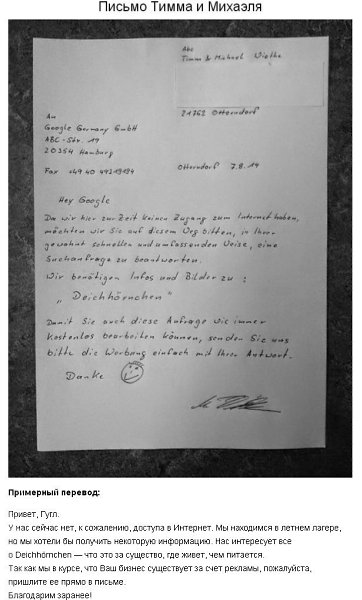 Письмо Тимма и Михаэля
Abs
Timm & Michael Wiethe
21762 Otterndorf
An
Google Germany GmbH
ABC-Str. 19
20354 Hamburg
Fax +49 40 49219194
Otterndorf 7.8.14
Hey Google
Da wir hier zur Zeit keinen Zugang zum Internet haben,
möchten wir Sie auf diesem Weg bitten, in Ihrer
gewohnt schnellen und umfassenden Weise, eine
Suchanfrage zu beantworten.
Wir benötigen Infos und Bilder zu:
„Deichhörnchen"
Damit Sie auch diese Anfrage wie immer
kostenlos bearbeiten können, senden Sie uns
bitte die Werbung einfach mit Ihrer Antwort.
Danke
Примерный перевод:
Привет, Гугл.
У нас сейчас нет, к сожалению, доступа в Интернет. Мы находимся в летнем лагере,
но мы хотели бы получить некоторую информацию. Нас интересует все
о Deichhörnchen — что это за существо, где живет, чем питается.
Так как мы в курсе, что Ваш бизнес существует за счет рекламы, пожалуйста,
пришлите ее прямо в письме.
Благодарим заранее!